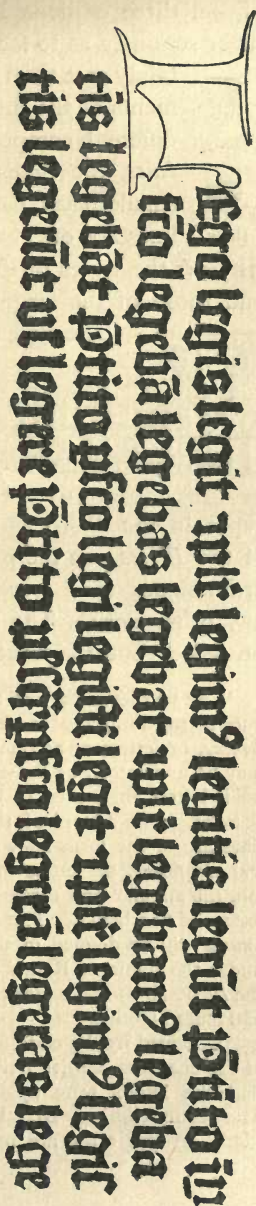 LEgo legis legit ⁊plr̄ legim⁹ legitis legūt P̄tito im
fc̄o legebā legebas legebat ⁊plr̄ legebam⁹ legeba
tis legebāt P̄tito ꝑfc̄o legi legisti legit ⁊plr̄ legim⁹ legis
tis legerūt vl̓ legere P̄tito plꝰq̄ꝑfc̄o legerā legeras lege